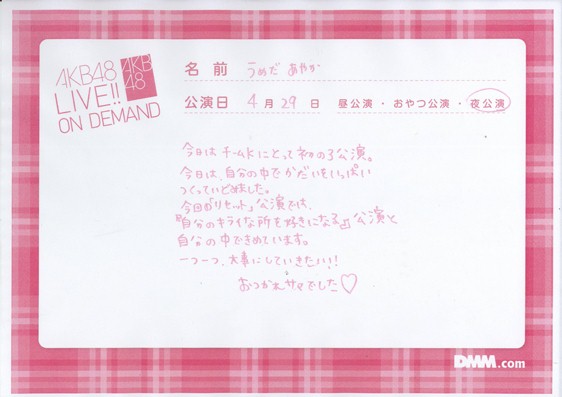 AKB48
LIVE!!
ON DEMAND
AKB
48
名前 うめだ あやか
公演日 4月29日 昼公演・おやつ公演・夜公演
今日はチームKにとって初の3公演。
今日は、自分の中でかだいをいっぱい
つくっていどみました。
今回の「リセット」公演では、
『自分のキライな所を好きになる』公演と
自分の中できめています。
一つ一つ、大事にしていきたい!!
おつかれサマでした♡
DMM.com